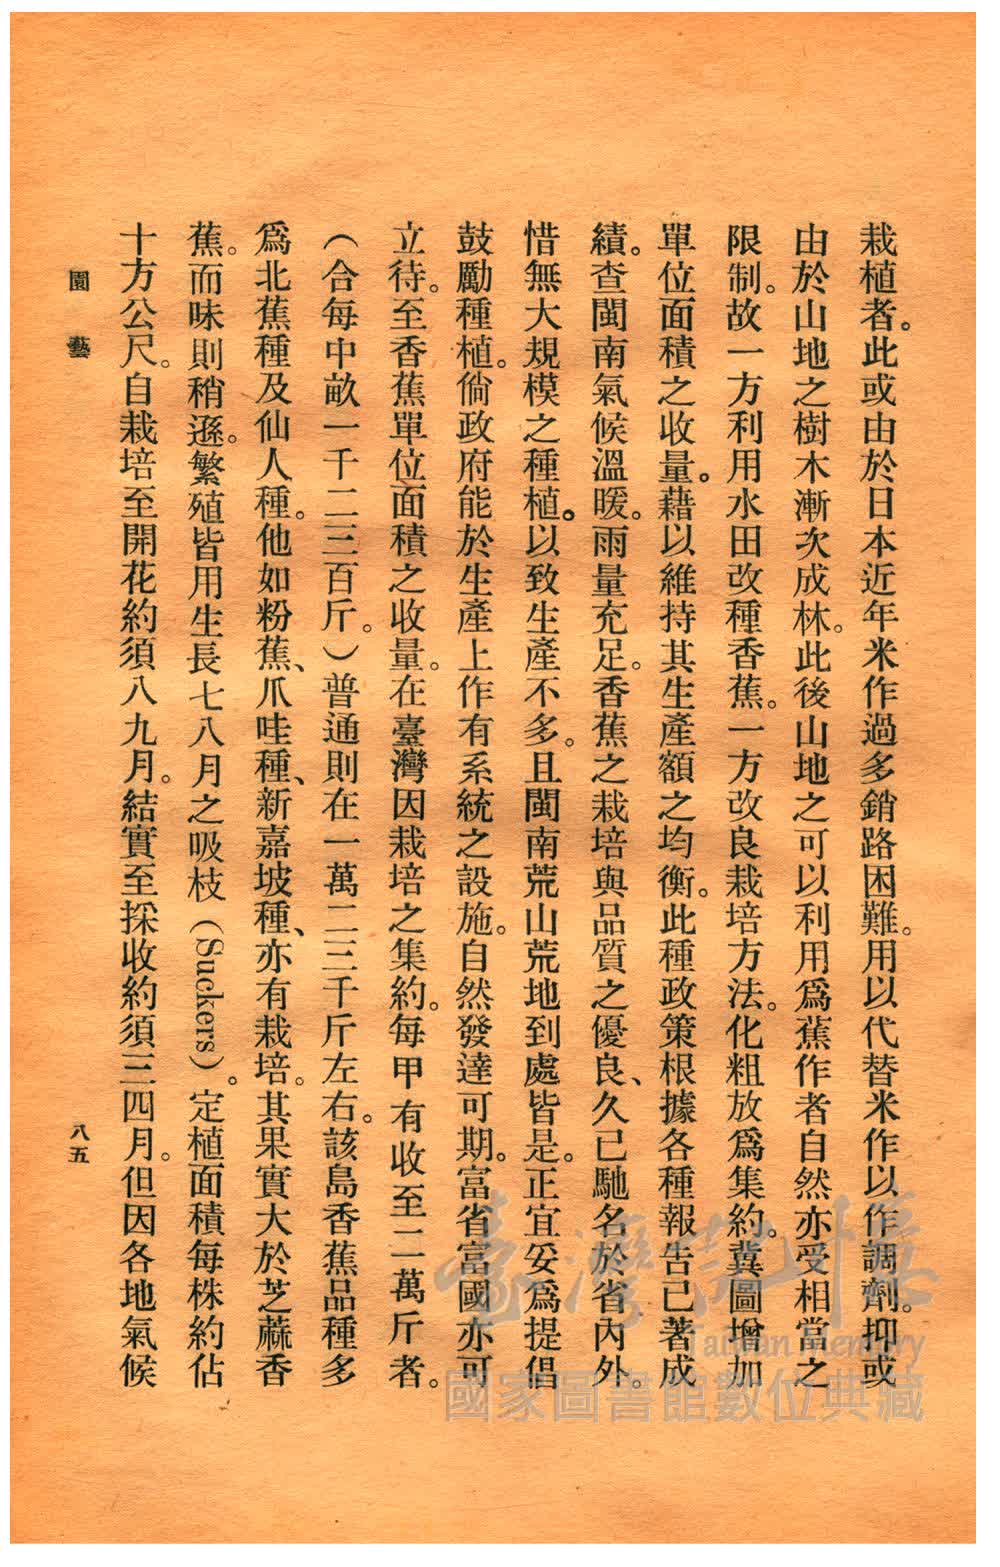 栽植者。此或由於日本近年米作過多銷路困難。用以代替米作以作調劑。抑或
由於山地之樹木漸次成林。此後山地之可以利用爲蕉作者自然亦受相當之
限制。故一方利用水田改種香蕉。一方改良栽培方法。化粗放爲集約。冀圖增加
單位面積之收量。藉以維持其生產額之均衡。此種政策根據各種報告已著成
績。查閩南氣候溫暖。雨量充足。香蕉之栽培與品質之優良、久已馳名於省內外。
惜無大規模之種植。以致生產不多。且閩南荒山荒地到處皆是。正宜妥爲提倡
鼓勵種植。倘政府能於生產上作有系統之設施。自然發達可期。富省富國亦可
立待。至香蕉單位面積之收量。在臺灣因栽培之集約。每甲有收至二萬斤者。
（合每中畝一千二三百斤。）普通則在一萬二三千斤左右。該島香蕉品種多
爲北蕉種及仙人種。他如粉蕉、爪哇種、新嘉坡種、亦有栽培。其果實大於芝蔴香
蕉。而味則稍遜。繁殖皆用生長七八月之吸枝（Suckers）。定植面積每株約佔
十方公尺。自栽培至開花約須八九月。結實至採收約須三四月。但因各地氣候
園藝
八五
臺灣記憶
Taiwan Memory
國家圖書館數位典藏